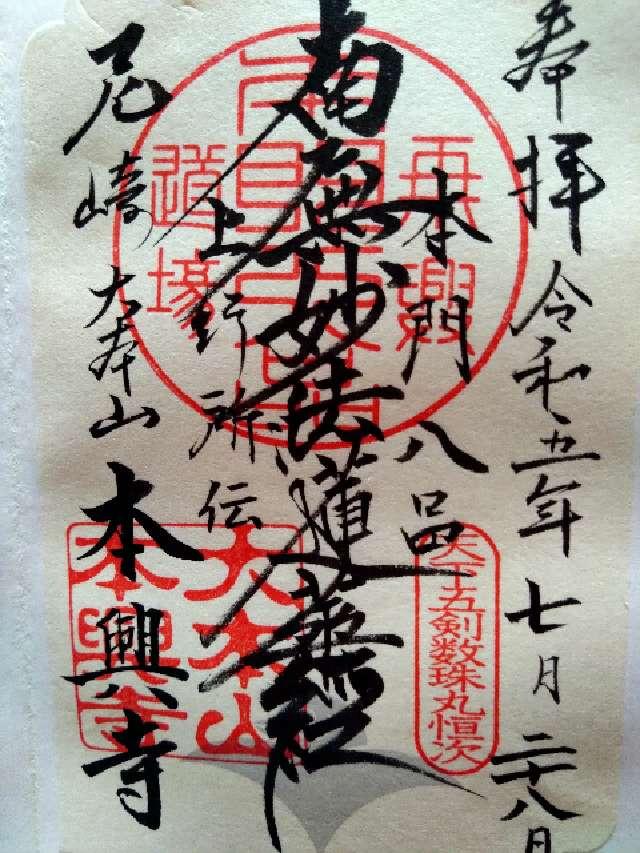 奉拝 令和五年 七月 二十八日
本門八品
南無妙法蓮華経
上行所伝
尼崎 大本山 本興寺
再興
道場
天下五剣数珠丸恒次
大本山
本興寺